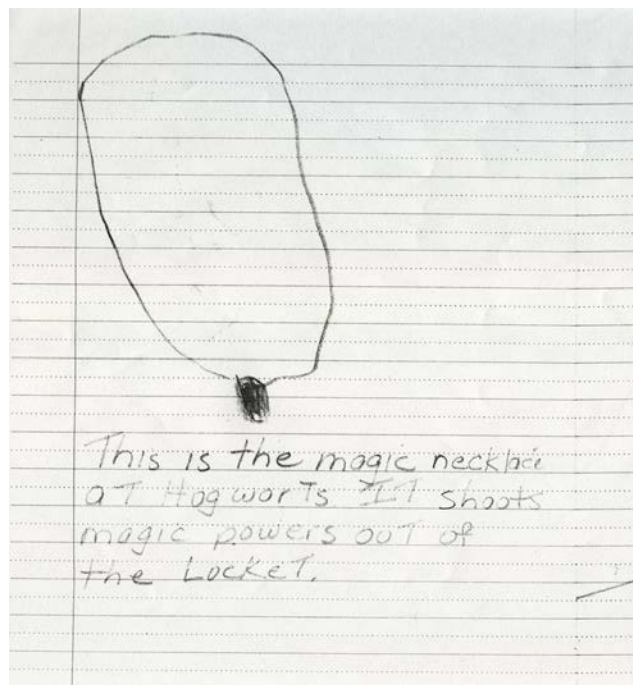 This is the magic necklace
aT Hogworts IT shoots
magic powers ouT of
the LockeT.